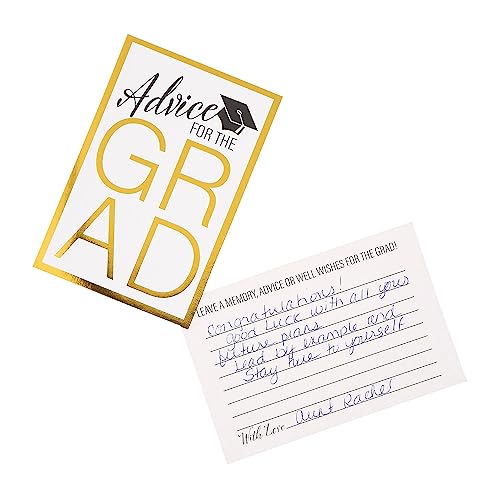 Advice
FOR THE
GR
AD
LEAVE A MEMORY, ADVICE OR WELL WISHES FOR THE GRAD!
Congratulations!
Good Luck with all your
future plans
Lead by example and
Stay true to yourself
With Love, Aunt Rachel